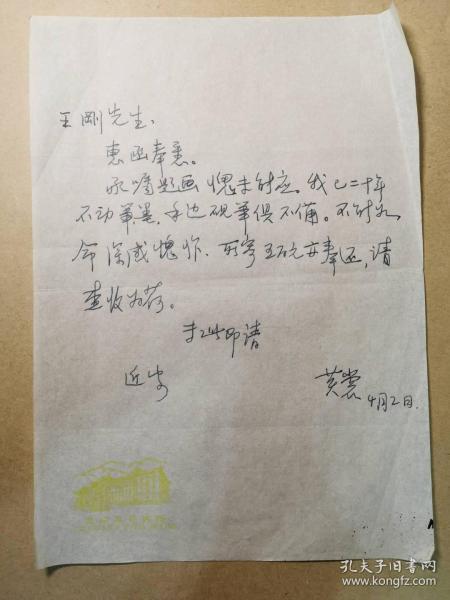 王刚先生、
惠函奉悉。
承嘱题画愧未能应。我已二十年
不动笔墨，手边砚笔俱不备。不能如
命深感愧怍．所寄五百元亦奉还，请
查收为荷。
专此即请
近安
黄裳
4月2日.
孔夫子旧书网
www.kongfz.com